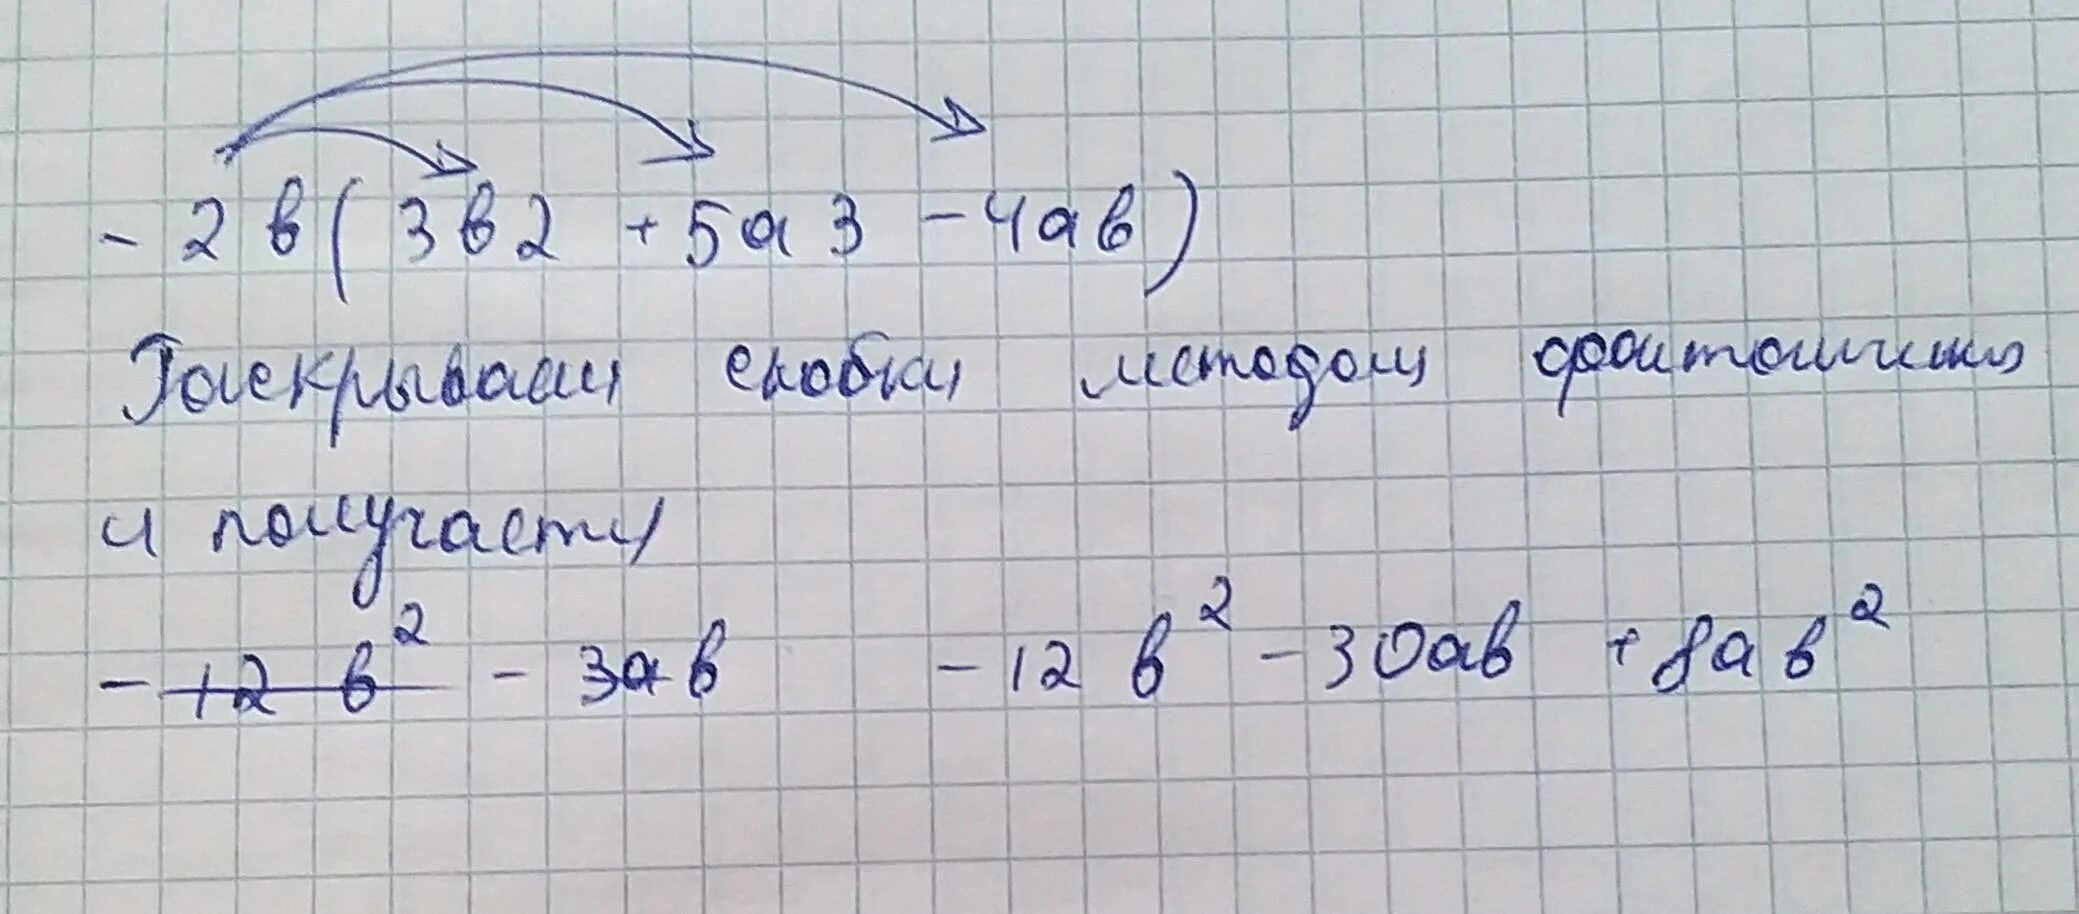 - 2 в ( 3 в 2 + 5 а 3 - 4 а в )
Раскрываем скобки методом фонтанчика
и получаем
- 12 в² - 3а в - 12 в² - 30ав + 8а в²